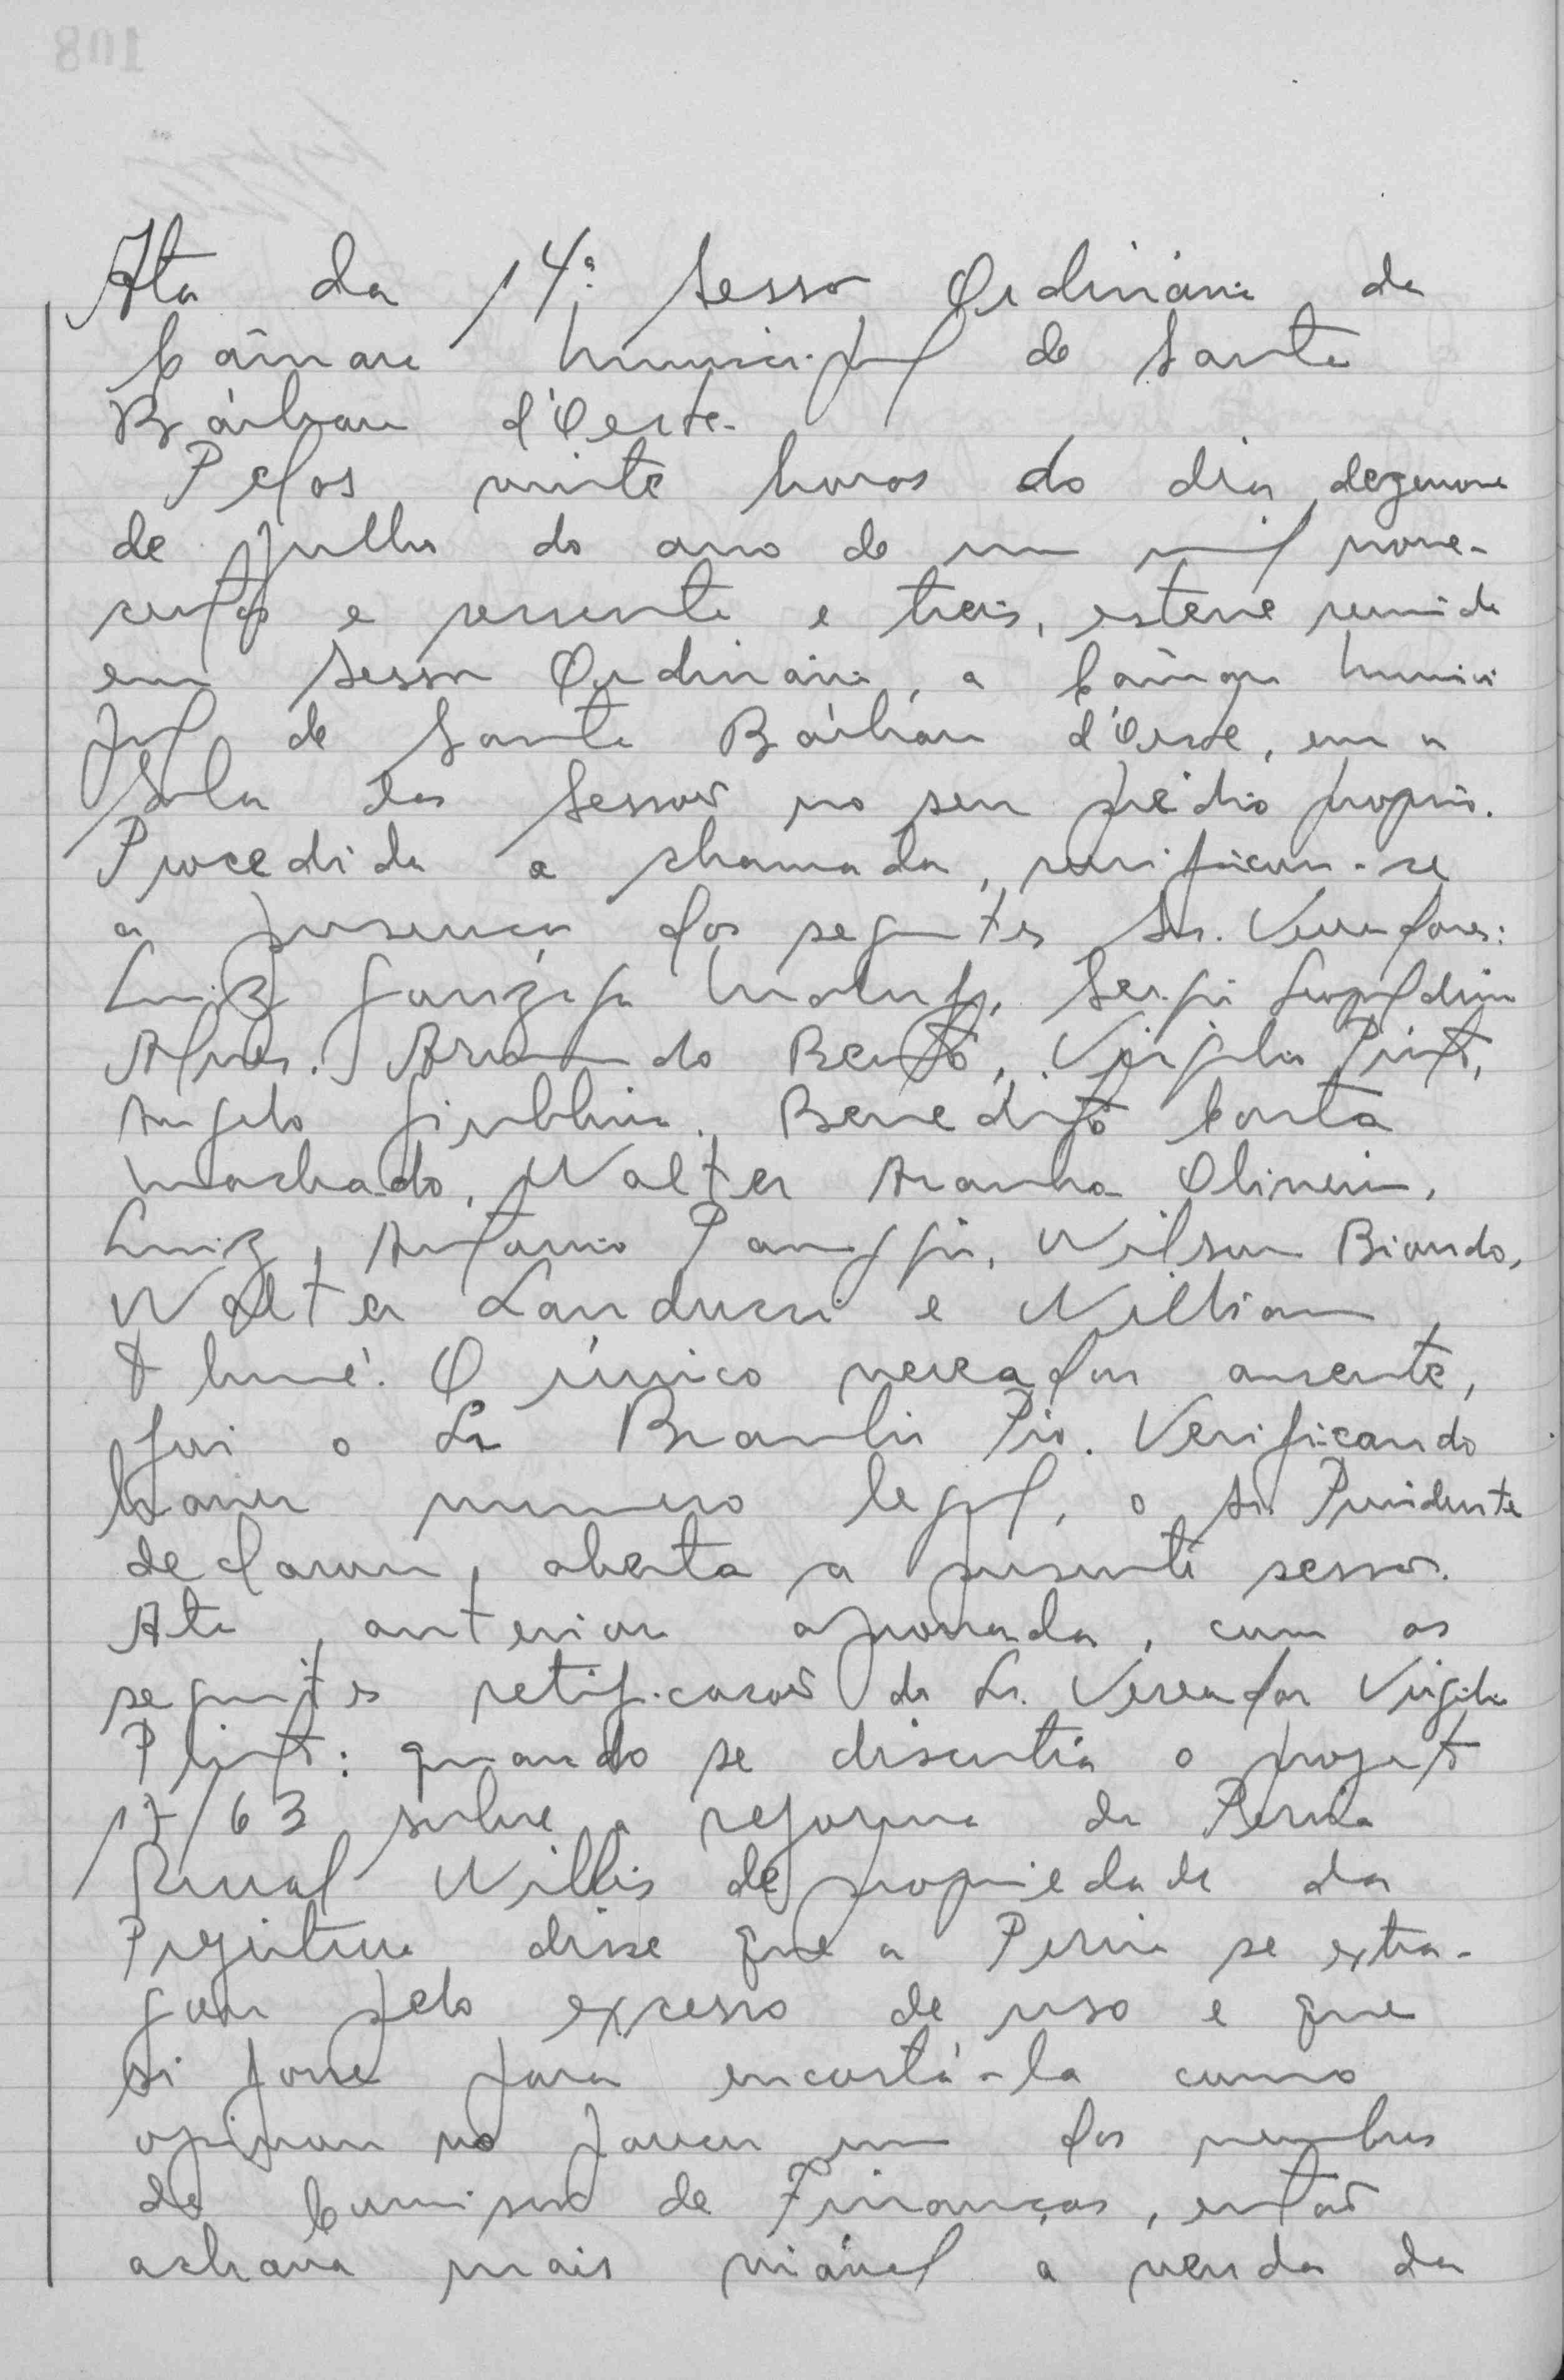 Ata da 14ª Sessão Ordinária da
Câmara Municipal de Santa
Bárbara d'Oeste.
Pelas vinte horas do dia dezenove
de julho do ano de um mil nove-
centos e sessenta e treis, esteve reunida
em Sessão Ordinária, a Câmara Munici
pal de Santa Bárbara d'Oeste, em a
Sala das Sessões no seu prédio proprio.
Procedida a chamada, verificou-se
a presença dos seguintes Srs. Vereadores:
Luiz Gonzaga Maluf, Sergio Leopoldino
Alves, Armando Bento, Virgilio Pinto,
Angelo Giubbina, Benedito Costa
Machado, Walter Aranha Oliveira,
Luiz Antonio Panaggio, Wilson Biondo,
Walter Landucci e Willian
Thomé. O único vereador ausente,
foi o Sr Braulio Pio. Verificando
haver numero legal, o Sr. Presidente
declarou aberta a presente sessão.
Ata anterior aprovada, com as
seguintes retificações do Sr. Vereador Virgilio
Pinto: quando se discutia o projeto
17/63 sobre a reforma da Perua
Rural Willis de propriedade da
Prefeitura disse que a Perua se extra-
gou pelo excesso de uso e que
si fosse para encostá-la como
opinou no parecer um dos membros
da Comissão de Finanças, então
achava mais viável a venda da